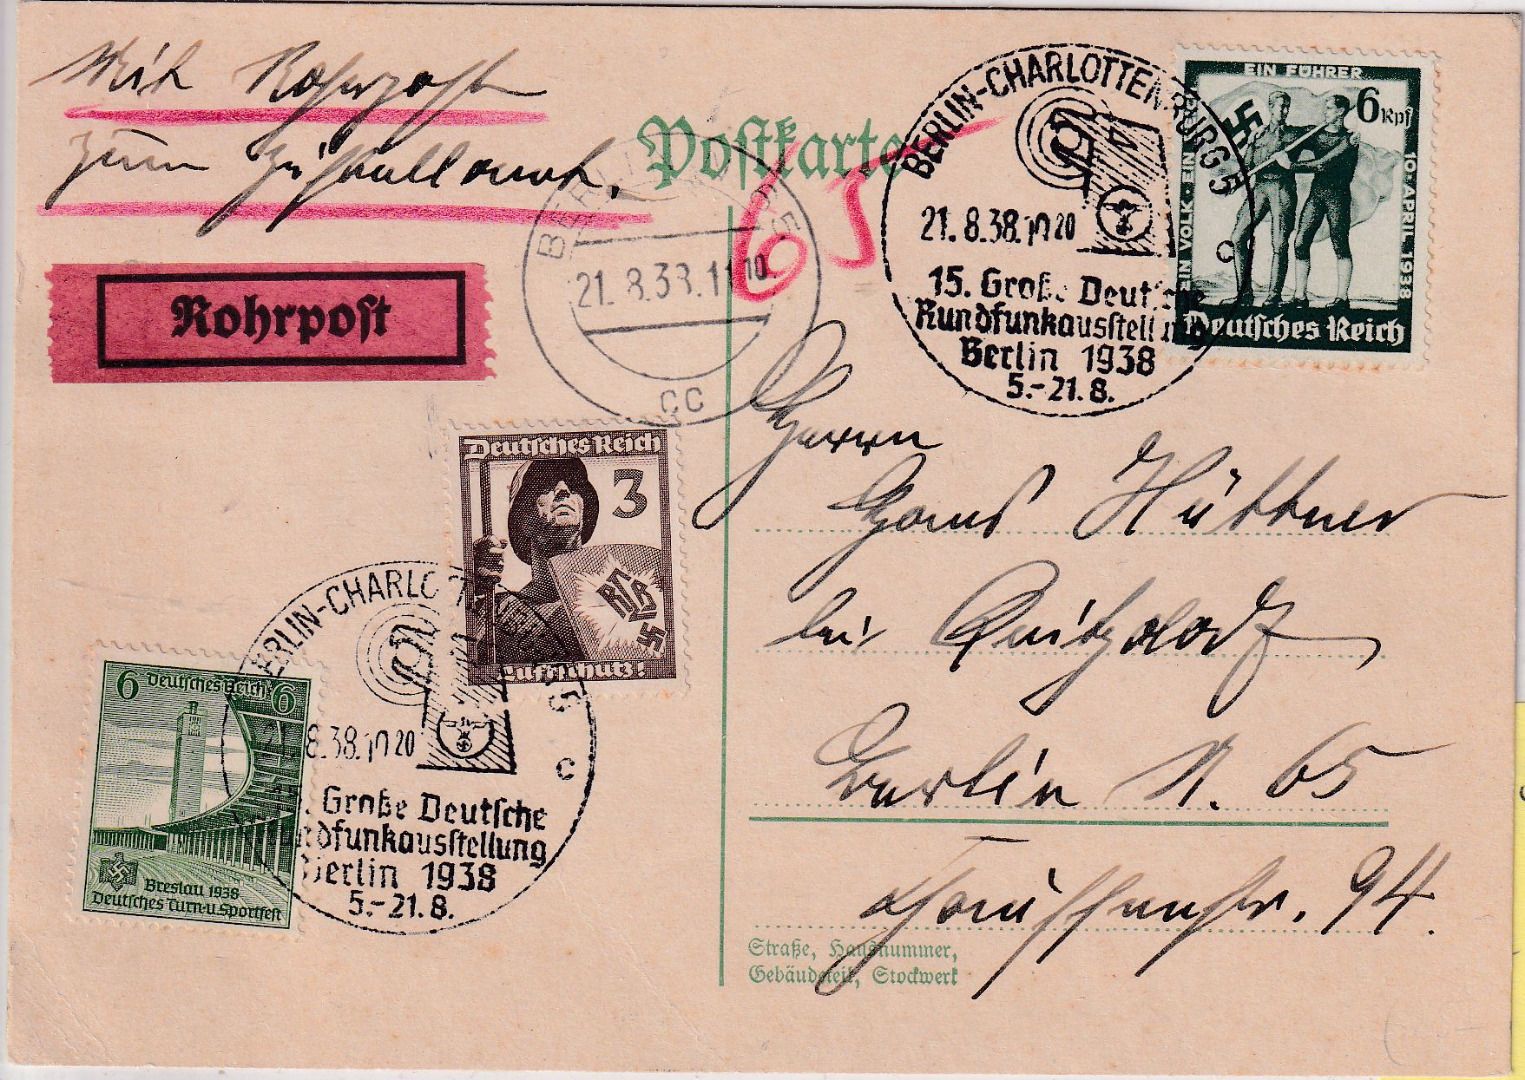 Mit Rohrpost
zum Zustellamt.
Postkarte
65
Rohrpost
BERLIN
21.8.38.11
10
CC
BERLIN-CHARLOTTENBURG 5
21.8.38.10 20
c
15. Große Deutsche
Rundfunkausstellung
Berlin 1938
5.-21.8.
EIN FÜHRER
EIN VOLK EIN
6 Rpf
10. APRIL 1938
Deutsches Reich
Deutsches Reich
3
RLB
Luftschutz!
6 Deutsches Reich 6
Breslau 1938
Deutsches Turn-u. Sportfest
BERLIN-CHARLOTTENBURG 5
21.8.38.10 20
c
15. Große Deutsche
Rundfunkausstellung
Berlin 1938
5.-21.8.
Herrn
Hans Hüttner
bei Quitzdorf
Berlin N. 65
94.
Straße, Hausnummer,
Gebäudeteil, Stockwerk